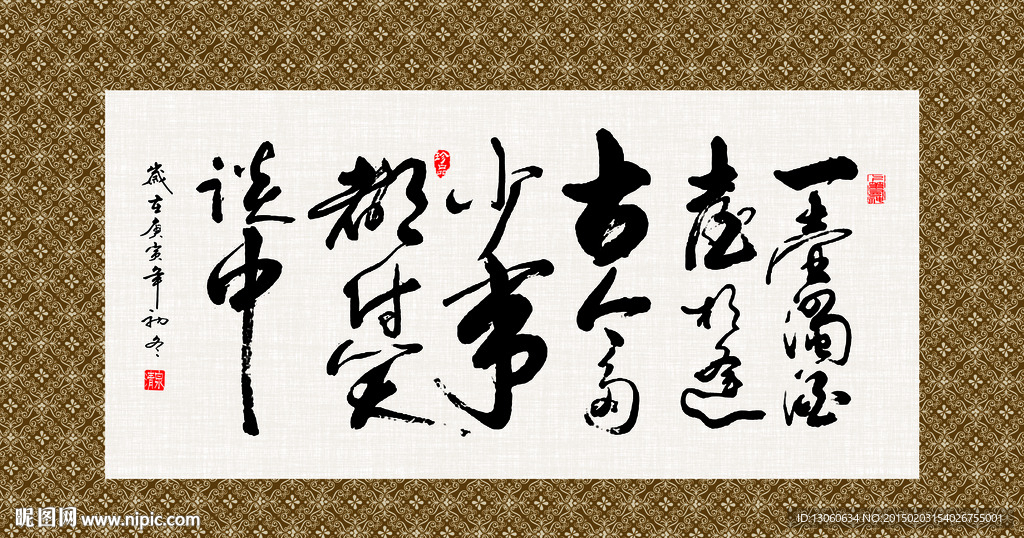 一壺濁酒
喜相逢
古今多
少事
都付笑
談中
歲在庚寅年初冬
珍品
昵图网 www.nipic.com
ID:13060634 NO:20150203154026755001